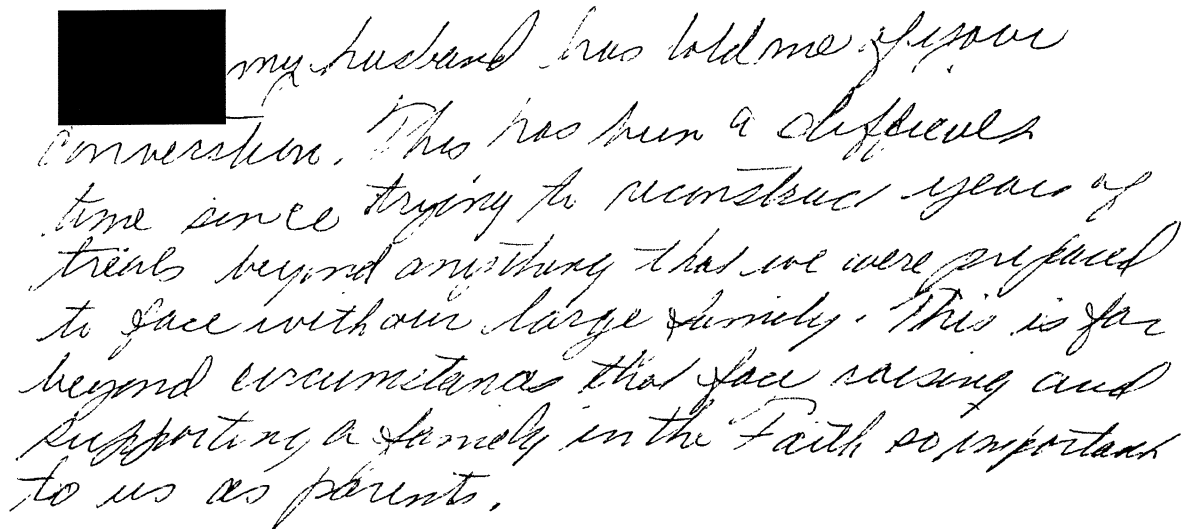 my husband has told me of your
conversation. This has been a difficult
time since trying to reconstruct years of
trials beyond anything that we were prepared
to face with our large family. This is far
beyond circumstances that face raising and
supporting a family in the Faith so important
to us as parents.